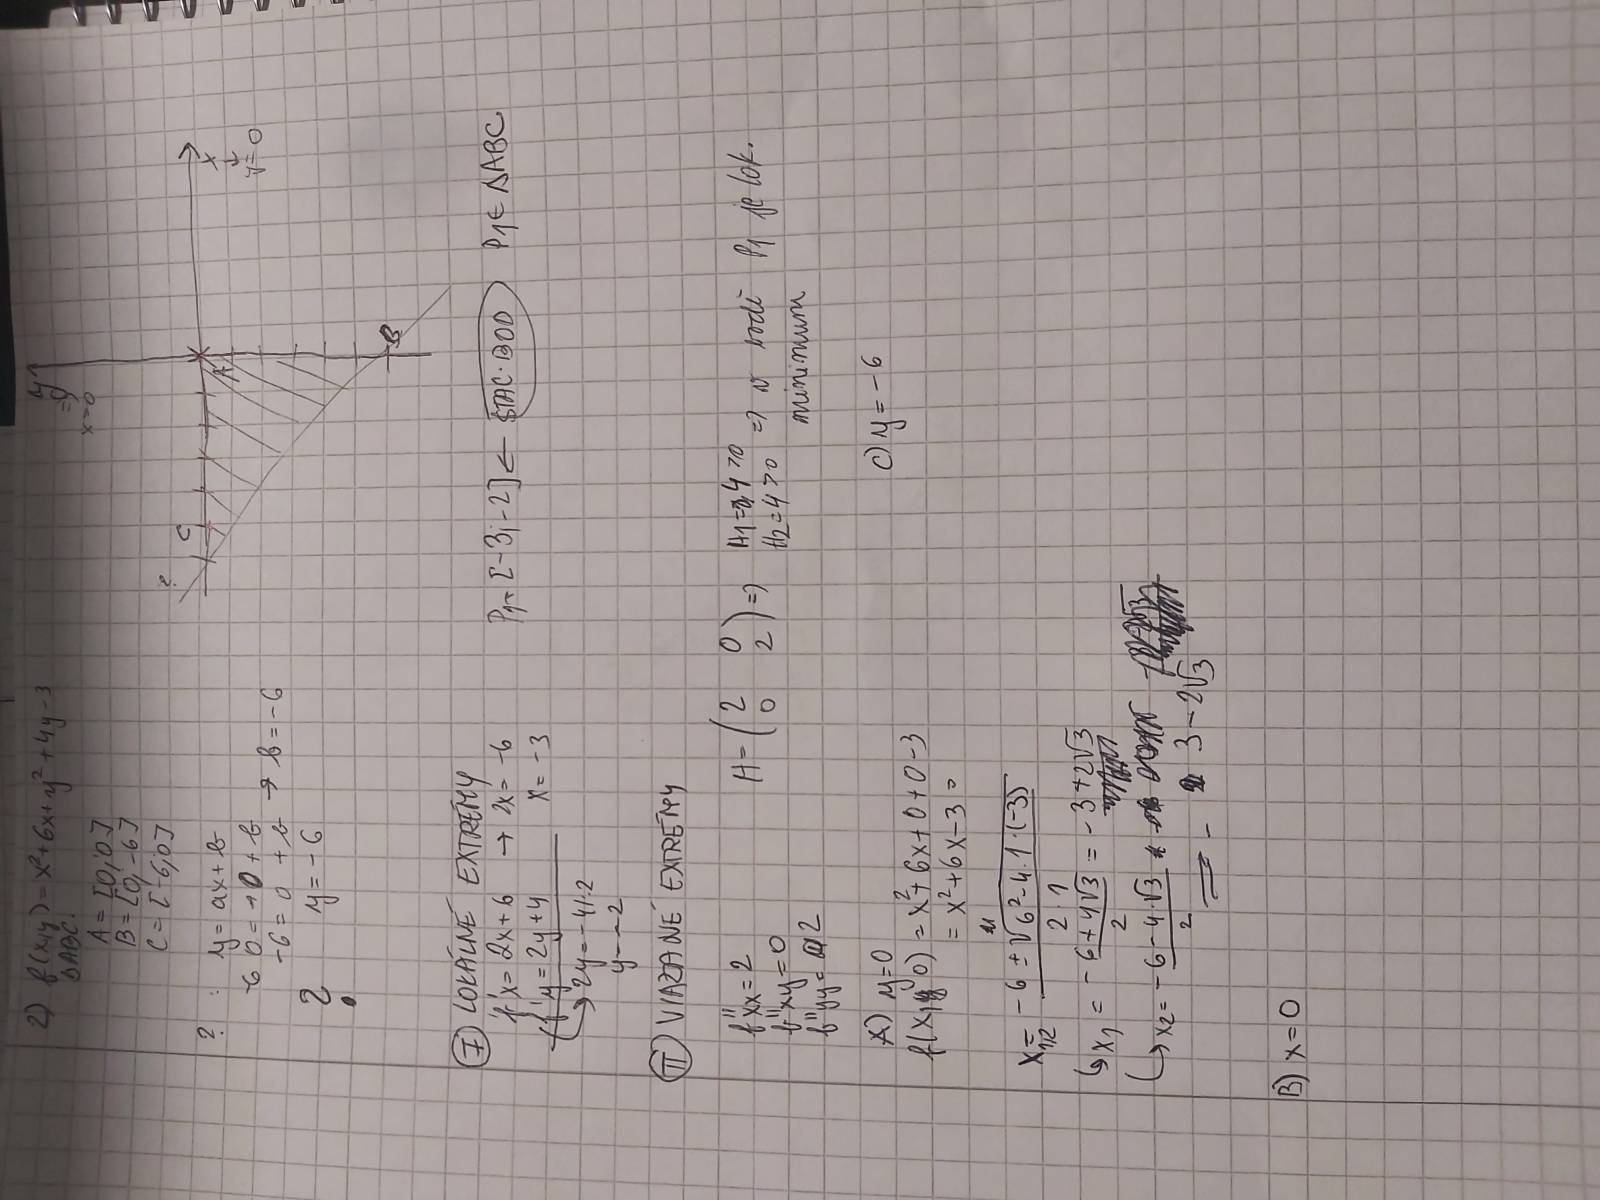 2) f(x,y) = x²+6x+y²+4y-3
ΔABC.
A = [0;0]
B = [0,-6]
C = [-6,0]
y
x=0
x
↓
y=0
A
B
C
?
? : y = ax+b
0 = 0 + b
-6 = 0 + b → b = -6
y = -6
?
I LOKÁLNE EXTRÉMY
f'x = 2x+6 → 2x = -6
f'y = 2y+4 x = -3
2y = -4/:2
y = -2
P₁ = [-3;-2] ← STAC. BOD P₁ ∈ ΔABC
II VIAZANÉ EXTRÉMY
f''xx = 2
f''xy = 0
f''yy = 2
H = (2 0
0 2) =>
H₁ = 4 > 0
H₂ = 4 > 0 => v bode P₁ je lok.
minimum
A) y = 0
f(x,0) = x²+6x+0+0-3
= x²+6x-3 =
x₁/₂ = -6 ± √6²-4·1·(-3)
2·1
↳ x₁ = -6+4√3 = -3+2√3
2
↳ x₂ = -6-4·√3
2
= - 3-2√3
C) y = -6
B) x = 0